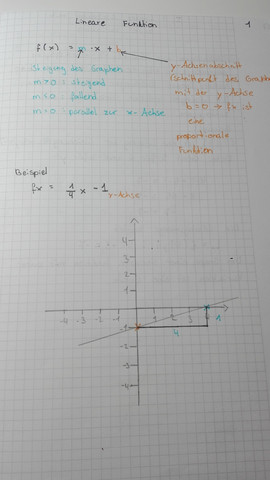 Lineare Funktion 1
f(x) = m · x + b
Steigung des Graphen
m > 0 : steigend
m < 0 : fallend
m = 0 : parallel zur x-Achse
y-Achsenabschnitt
(Schnittpunkt des Graphen
mit der y-Achse
b = 0 → f ist
eine
proportionale
Funktion
Beispiel
fx = 1/4 x - 1
y-Achse
4
3
2
1
-4 -3 -2 -1 1 2 3
-1
-2
-3
-4
4
1